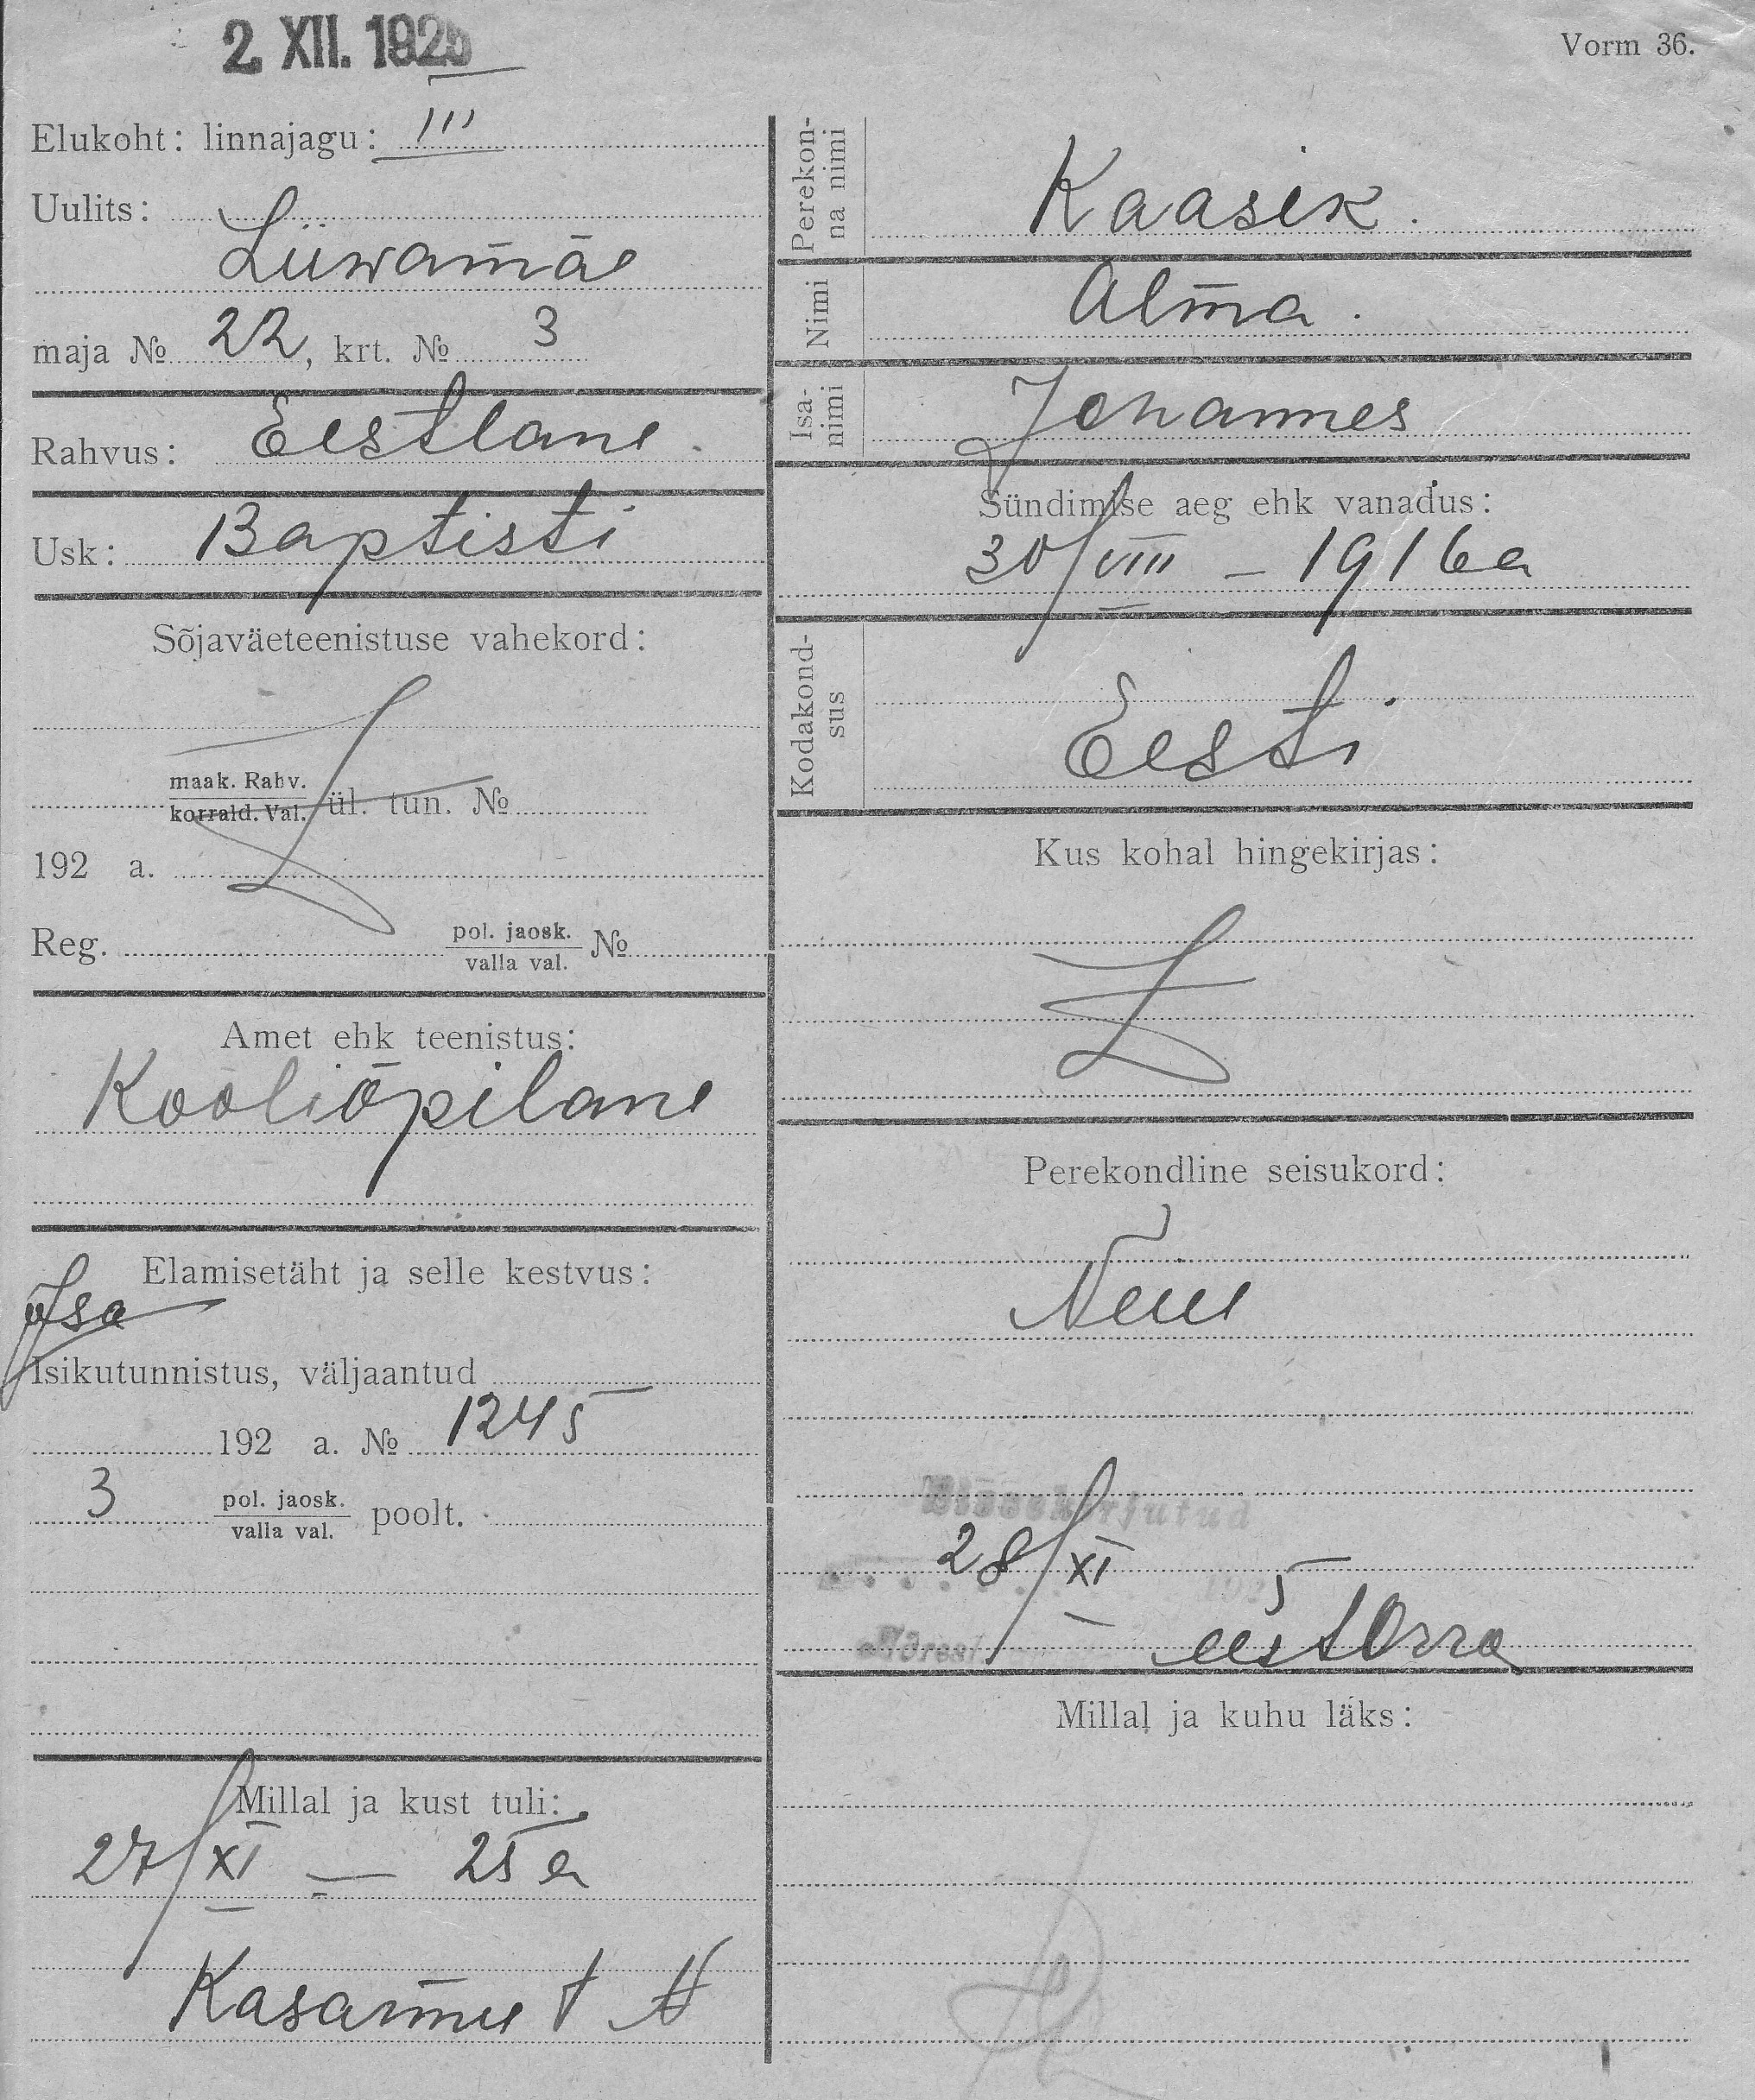 2. XII. 1925
Vorm 36.
Elukoht: linnajagu: III
Uulits:
Liiwamäe
maja № 22, krt. № 3
Rahvus: Eestlane.
Usk: Baptisti
Sõjaväeteenistuse vahekord:
maak. Rahv.
korrald. Val. ül. tun. №
192 a.
Reg. pol. jaosk. №
valla val.
Amet ehk teenistus:
Kooliõpilane
Elamisetäht ja selle kestvus:
Isa
Isikutunnistus, väljaantud
192 a. № 1245
3 pol. jaosk. poolt.
valla val.
Millal ja kust tuli:
27/XI — 25 a
Kasarmu t
Perekon-
na nimi
Kaasik.
Nimi
Alma.
Isa-
nimi
Johannes
Sündimise aeg ehk vanadus:
30/VIII — 1916 a
Kodakond-
sus
Eesti
Kus kohal hingekirjas:
Perekondline seisukord:
Neiu
Sissekirjutud
28/XI 1925
Millal ja kuhu läks: